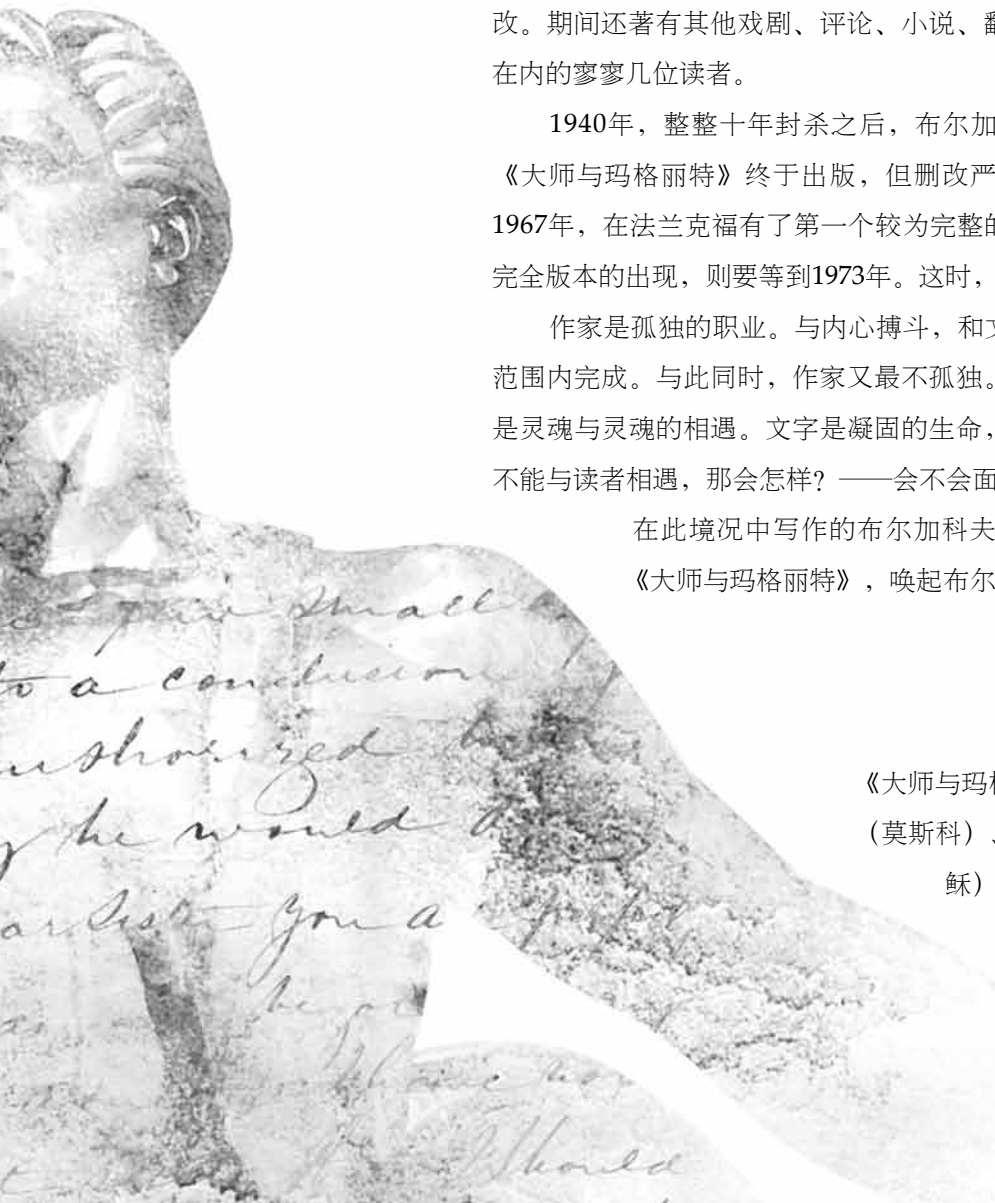 改。期间还著有其他戏剧、评论、小说、翻
在内的寥寥几位读者。
1940年，整整十年封杀之后，布尔加
《大师与玛格丽特》终于出版，但删改严
1967年，在法兰克福有了第一个较为完整的
完全版本的出现，则要等到1973年。这时，
作家是孤独的职业。与内心搏斗，和文
范围内完成。与此同时，作家又最不孤独。
是灵魂与灵魂的相遇。文字是凝固的生命，
不能与读者相遇，那会怎样？——会不会面
在此境况中写作的布尔加科夫
《大师与玛格丽特》，唤起布尔
《大师与玛格
（莫斯科）、
稣）
small
to a conclusion
he would a
you a
be
should